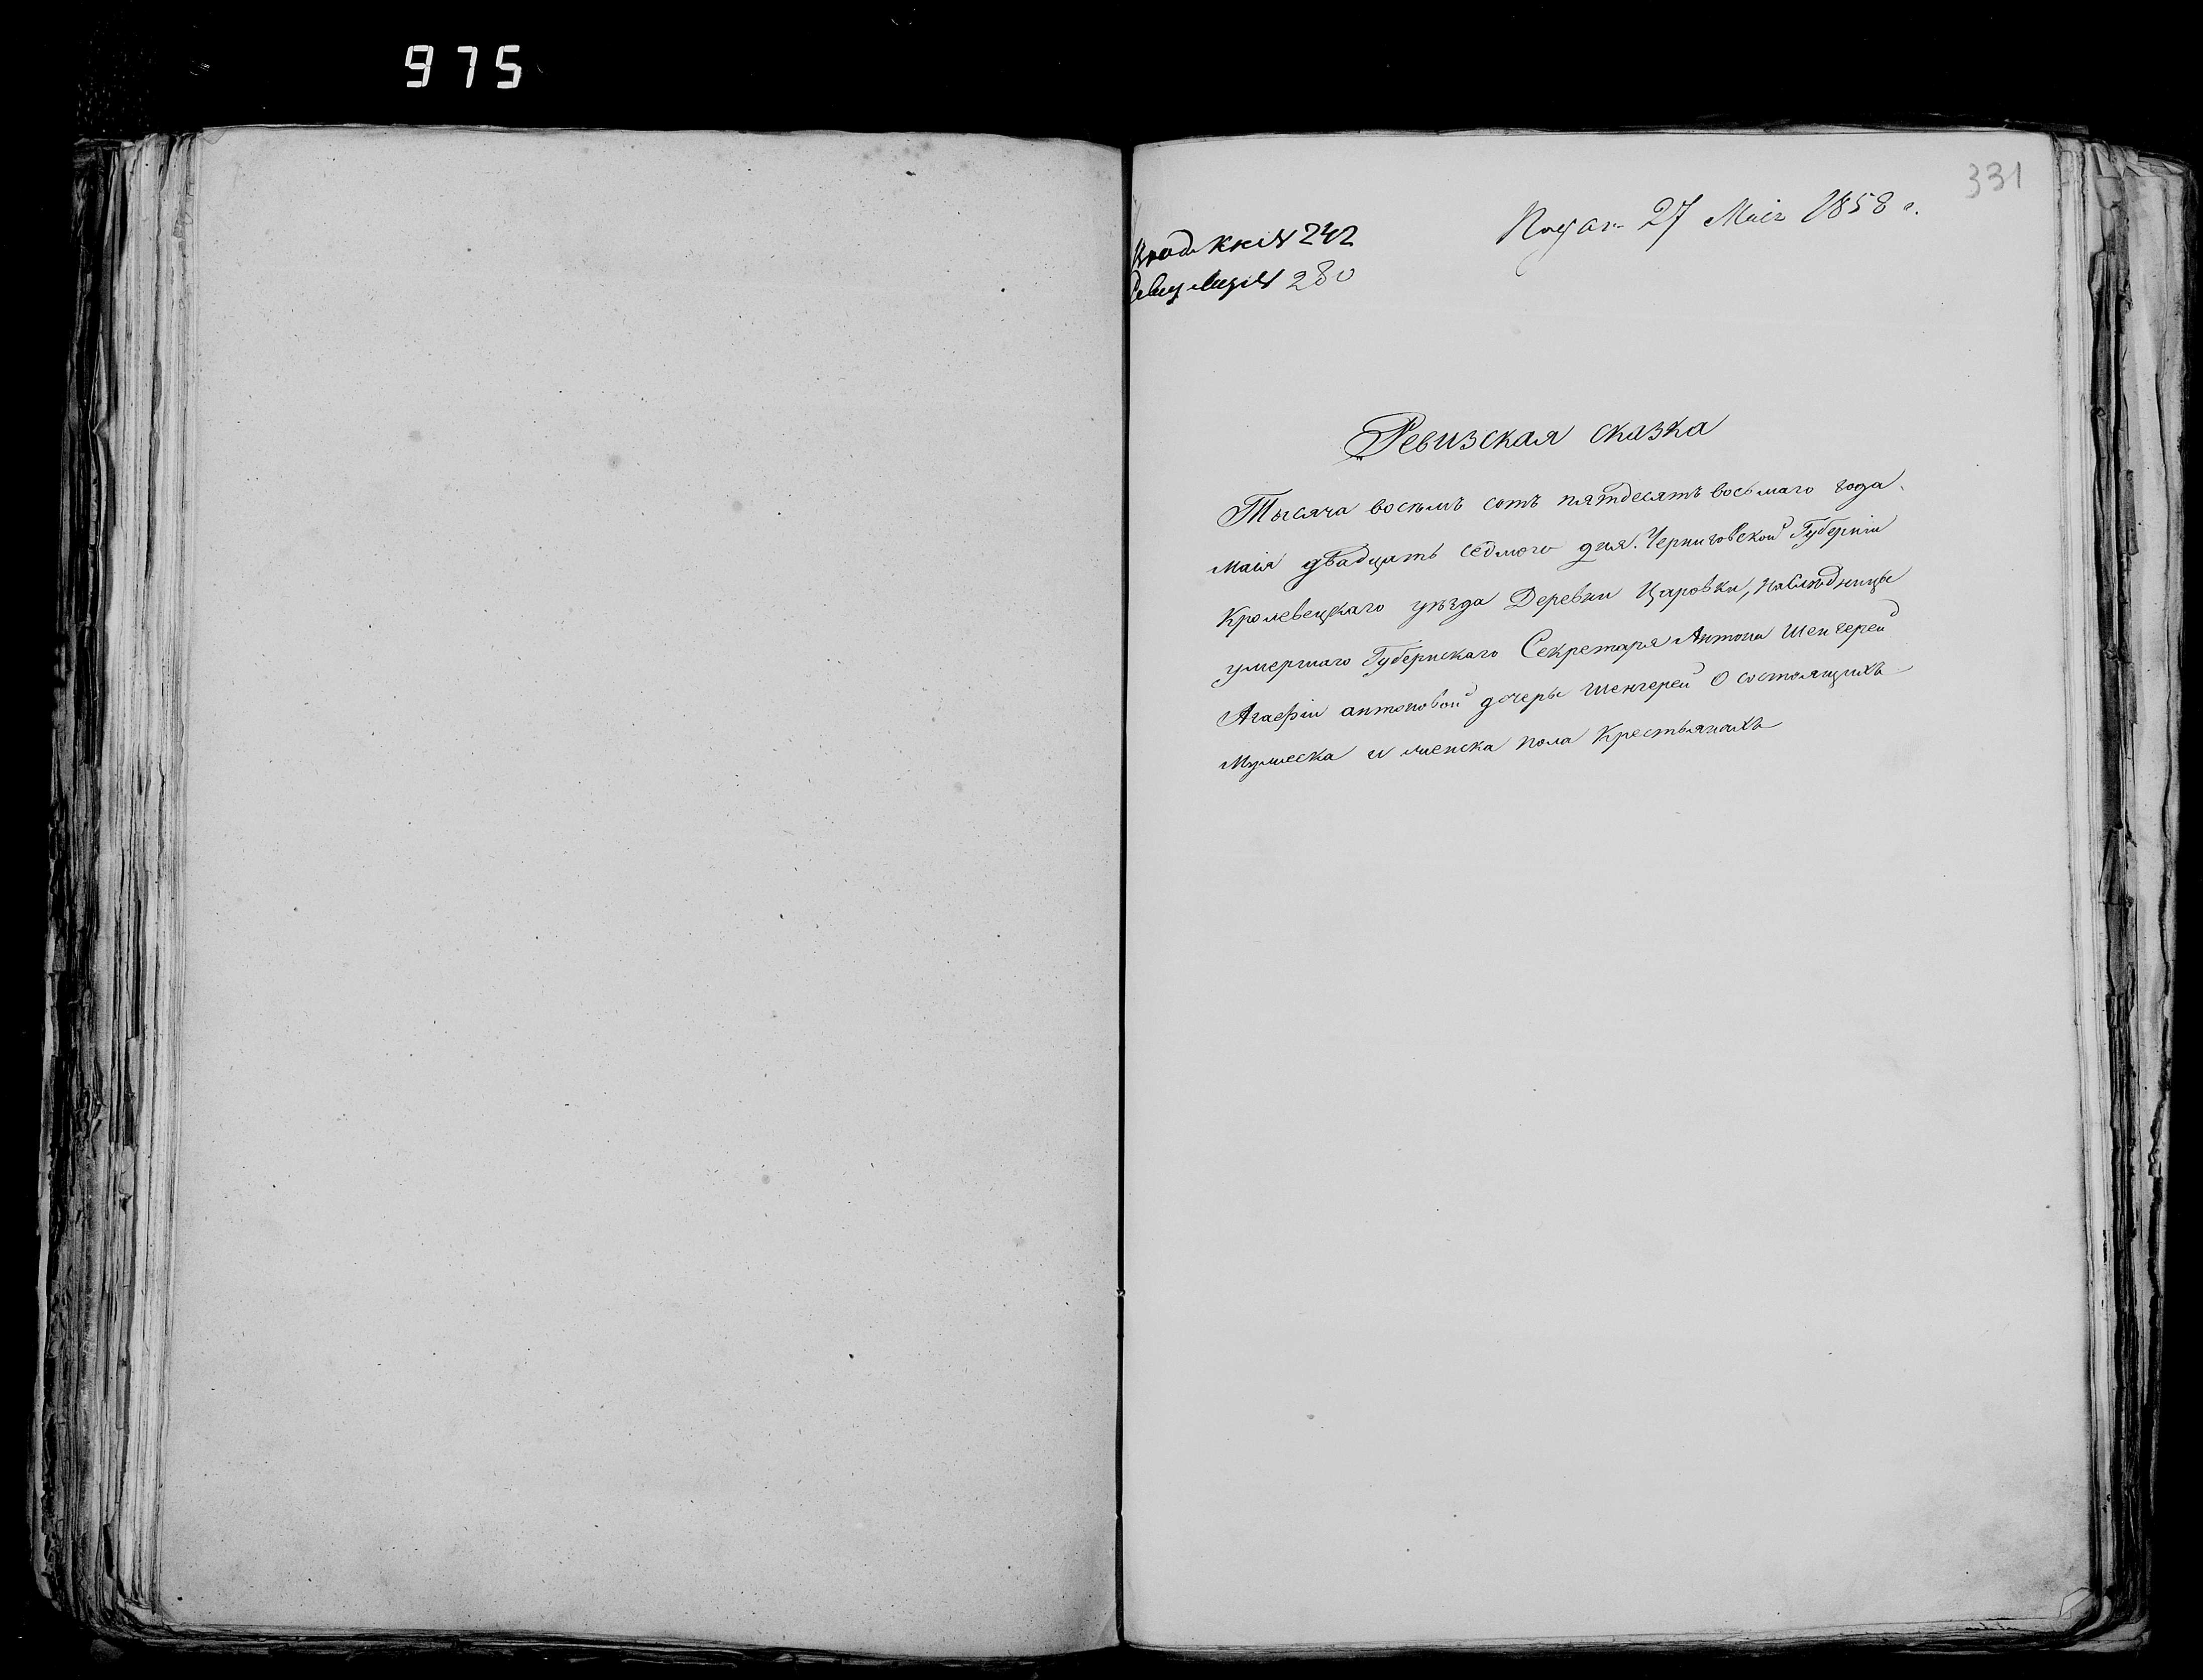 975
331
Подан. 27 Маія 1858 г.
Вход. кни № 242
280
Ревизская сказка
Тысяча восемь сотъ пятдесятъ восьмаго года
маія двадцать седмого дня. Черниговской Губерніи
Кролевецкаго уѣзда Деревни Царовки, наслѣдницы
умершаго Губернскаго Секретаря Антона Шенгерей
Агафіи антоновой дочеры Шенгерей О состоящихъ
Мужеска и женска пола Крестьянахъ